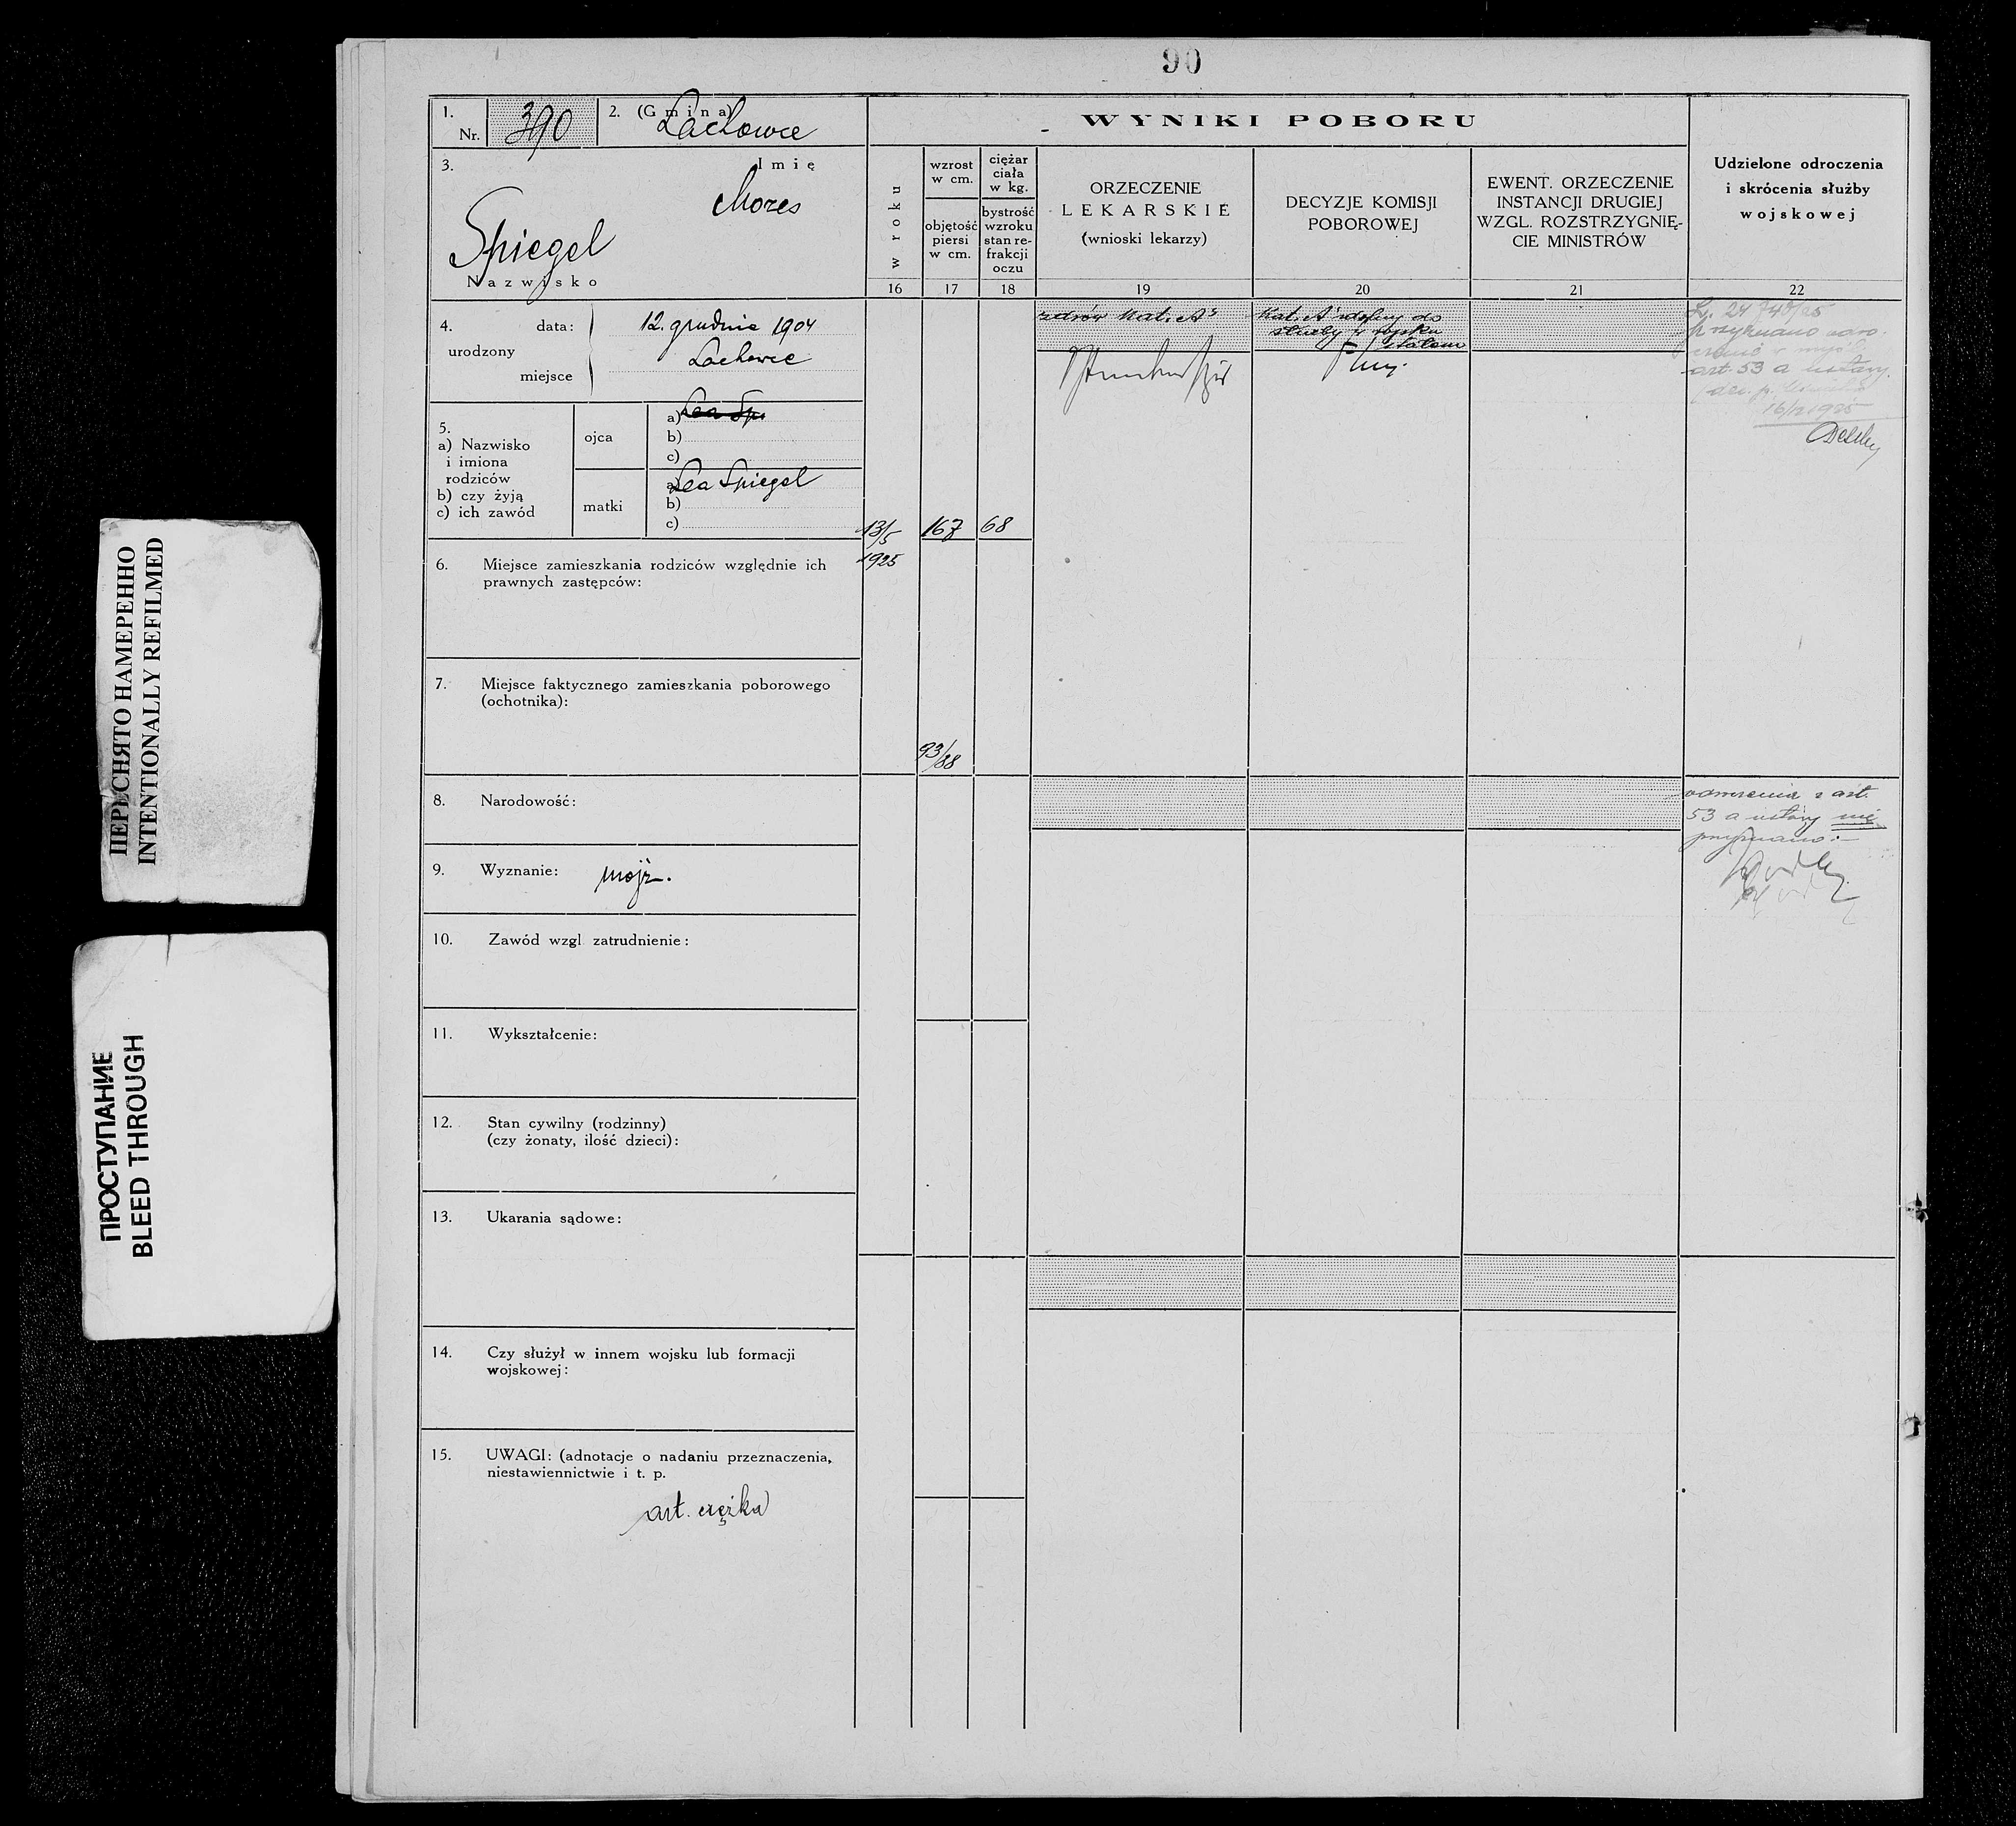 90
1.
Nr. 390
2. (Gmina)
Lachowce
3.
Imię
Mozes
Spiegel
Nazwisko
4.
urodzony
data:
12. grudnia 1904
miejsce
Lachowce
5.
a) Nazwisko
i imiona
rodziców
b) czy żyją
c) ich zawód
ojca
a) Lea Spi
b)
c)
matki
a) Lea Spiegel
b)
c)
6. Miejsce zamieszkania rodziców względnie ich
prawnych zastępców:
7. Miejsce faktycznego zamieszkania poborowego
(ochotnika):
8. Narodowość:
9. Wyznanie: mojż.
10. Zawód wzgl. zatrudnienie:
11. Wykształcenie:
12. Stan cywilny (rodzinny)
(czy żonaty, ilość dzieci):
13. Ukarania sądowe:
14. Czy służył w innem wojsku lub formacji
wojskowej:
15. UWAGI: (adnotacje o nadaniu przeznaczenia,
niestawiennictwie i t. p.
art. ciężka
WYNIKI POBORU
w roku
16
13/5
1925
wzrost
w cm.
objętość
piersi
w cm.
17
167
93/88
ciężar
ciała
w kg.
bystrość
wzroku
stan re-
frakcji
oczu
18
68
ORZECZENIE
LEKARSKIE
(wnioski lekarzy)
19
zdrów Kat. A
DECYZJE KOMISJI
POBOROWEJ
20
Kat. A zdolny do
służby w wojsku
stałem
EWENT. ORZECZENIE
INSTANCJI DRUGIEJ
WZGL. ROZSTRZYGNIĘ-
CIE MINISTRÓW
21
Udzielone odroczenia
i skrócenia służby
wojskowej
22
przyznano odro-
czenie w myśl
art. 53 a ustawy
16/12 1925
odroczenia z art.
53 a ustawy nie
przyznano.
ПЕРЕСНЯТО НАМЕРЕННО
INTENTIONALLY REFILMED
ПРОСТУПАНИЕ
BLEED THROUGH